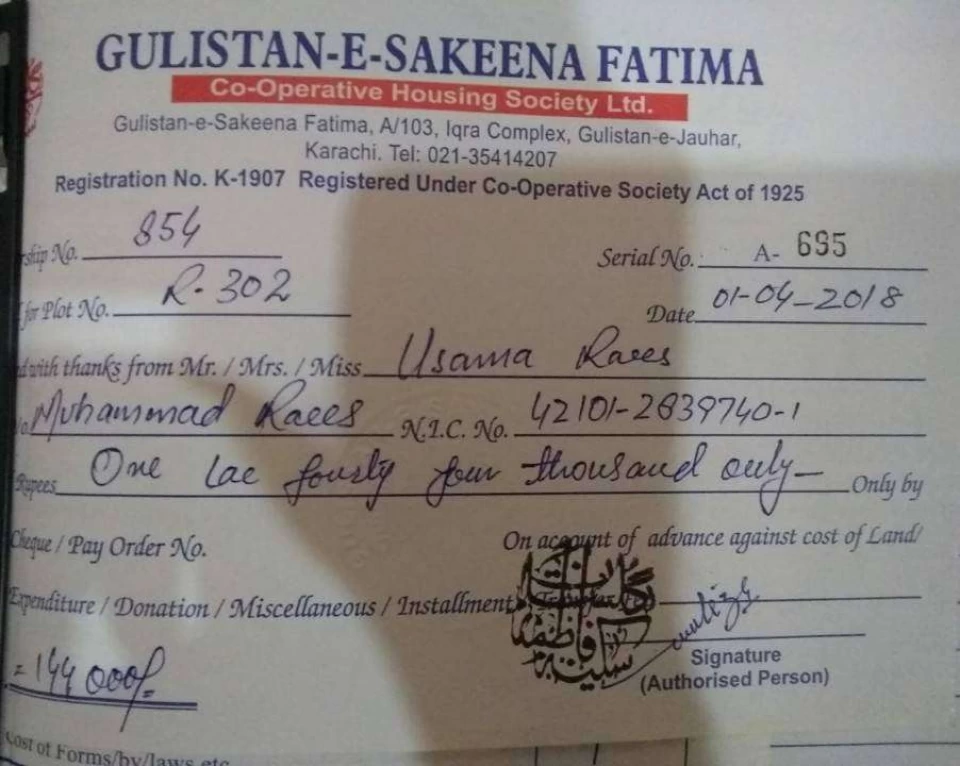 GULISTAN-E-SAKEENA FATIMA
Co-Operative Housing Society Ltd.
Gulistan-e-Sakeena Fatima, A/103, Iqra Complex, Gulistan-e-Jauhar,
Karachi. Tel: 021-35414207
Registration No. K-1907 Registered Under Co-Operative Society Act of 1925
ship No. 854 Serial No.: A- 695
for Plot No. R-302 Date 01-04-2018
with thanks from Mr. / Mrs. / Miss Usama Raees
Muhammad Raees N.I.C. No. 42101-2839740-1
Rupees One lac fourty four thousand only Only by
Cheque / Pay Order No. On account of advance against cost of Land/
Expenditure / Donation / Miscellaneous / Installment
گلستان سکینہ فاطمہ
Signature
(Authorised Person)
= 144000/=
Cost of Forms/by/laws etc